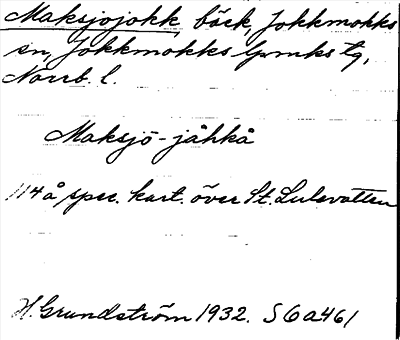 Maksjojokk, bäck, Jokkmokks
sn, Jokkmokks lpmks tg,
Norrb. l.
Maksjö-jåhkå
114 å spec. kart. över St. Lulevatten
H. Grundström 1932. S 6a461